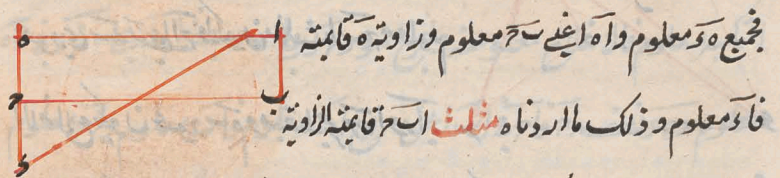 فجميع ه ء معلوم و ا ه اعني ب ح معلوم و زاوية ه قايمته
فا ء معلوم و ذلك ما اردناه مثلث ا ب ح قايمته الزاوية
ه
ا
ح
ب
ء